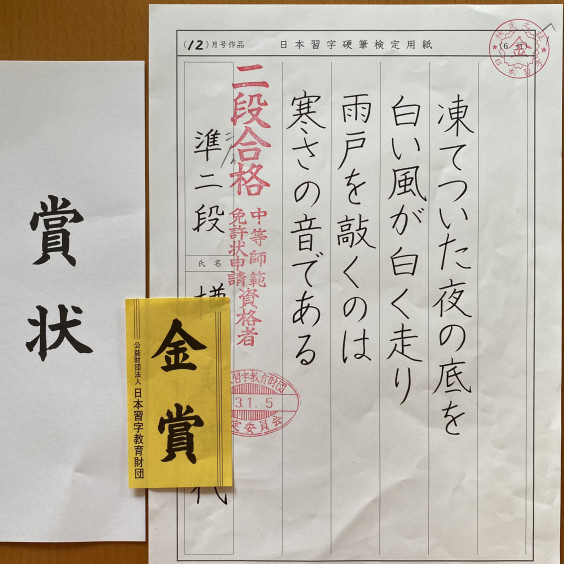 (12)月号作品
日本習字硬筆検定用紙
金
日本習字
凍てついた夜の底を
白い風が白く走り
雨戸を敲くのは
寒さの音である
二段合格
中等師範資格者
免許状申請
準二段
氏名
習字教育財団
3.1.5
定委員会
賞状
金賞
公益財団法人 日本習字教育財団